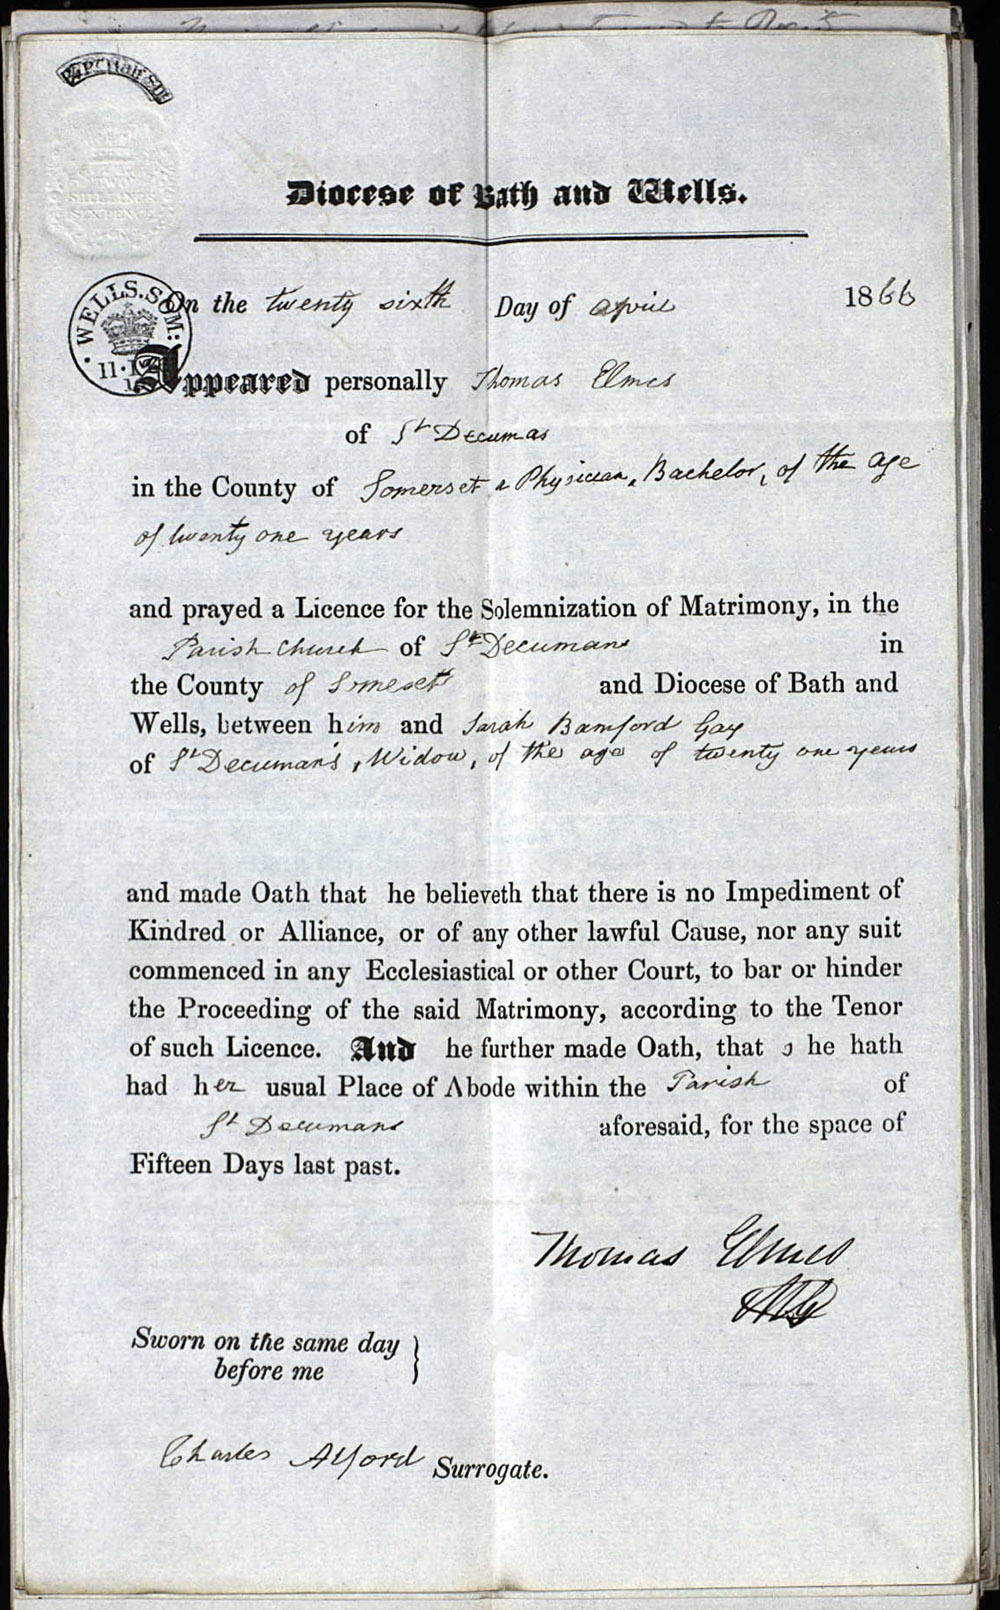 Diocese of Bath and Wells.
TWO
SHILLINGS
SIXPENCE
WELLS. SOM:
On the twenty sixth Day of april 1866
Appeared personally Thomas Elmes
of St Decumas
in the County of Somerset a Physician, Bachelor, of the age
of twenty one years
and prayed a Licence for the Solemnization of Matrimony, in the
Parish Church of St Decumans in
the County of Somesett and Diocese of Bath and
Wells, between him and Sarah Bamford Gay
of St Decuman's, Widow, of the age of twenty one years
and made Oath that he believeth that there is no Impediment of
Kindred or Alliance, or of any other lawful Cause, nor any suit
commenced in any Ecclesiastical or other Court, to bar or hinder
the Proceeding of the said Matrimony, according to the Tenor
of such Licence. And he further made Oath, that s he hath
had her usual Place of Abode within the Parish of
St Decumans aforesaid, for the space of
Fifteen Days last past.
Thomas Elmes
Sworn on the same day
before me
Charles Alford Surrogate.